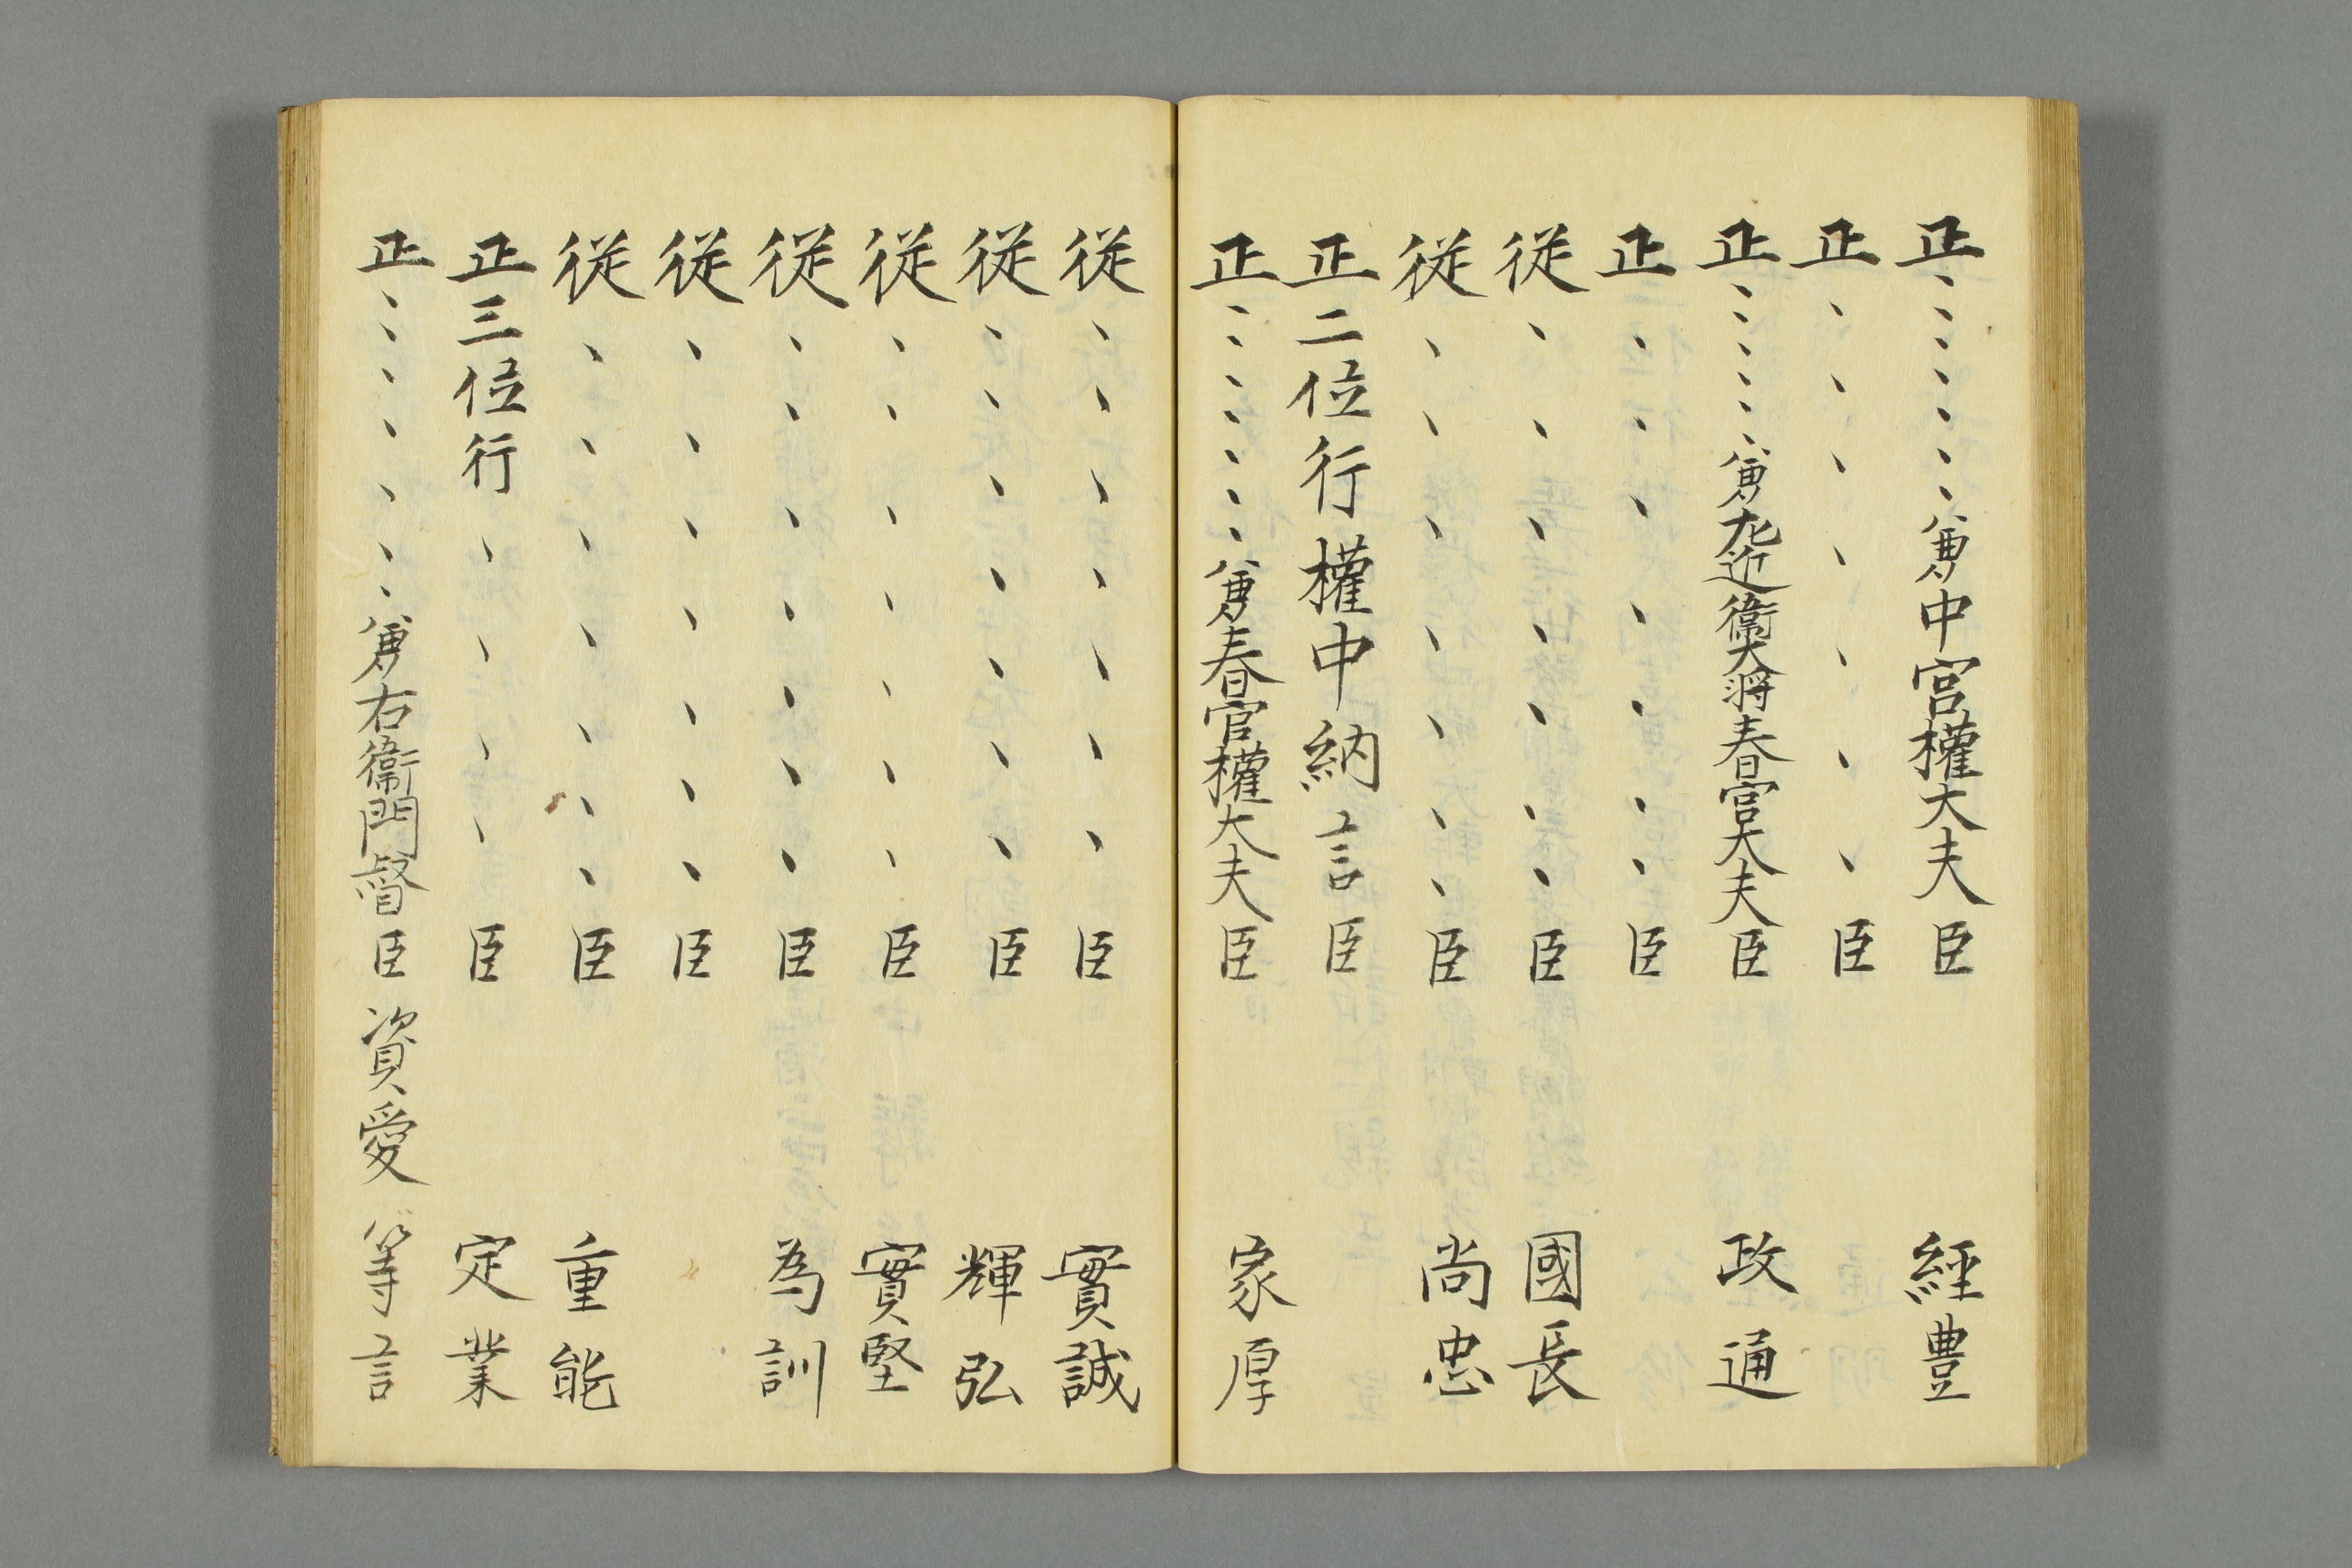 正、、、、、、、、兼中宮權大夫臣 經豊
正、、、、、、、臣
正、、、、、、兼左近衛大将春宮大夫臣 政通
正、、、、、、、臣
従、、、、、、臣 國長
従、、、、、、、臣 尚忠
正二位行權中納言臣
正、、、、、、、、兼春宮權大夫臣 家厚
従、、、、、、、臣 實誠
従、、、、、、、臣 輝弘
従、、、、、、、臣 實堅
従、、、、、、、臣 為訓
従、、、、、、、臣
従、、、、、、、臣 重能
正三位行、、、、臣 定業
正、、、、、、、兼右衛門督臣 資愛 等言